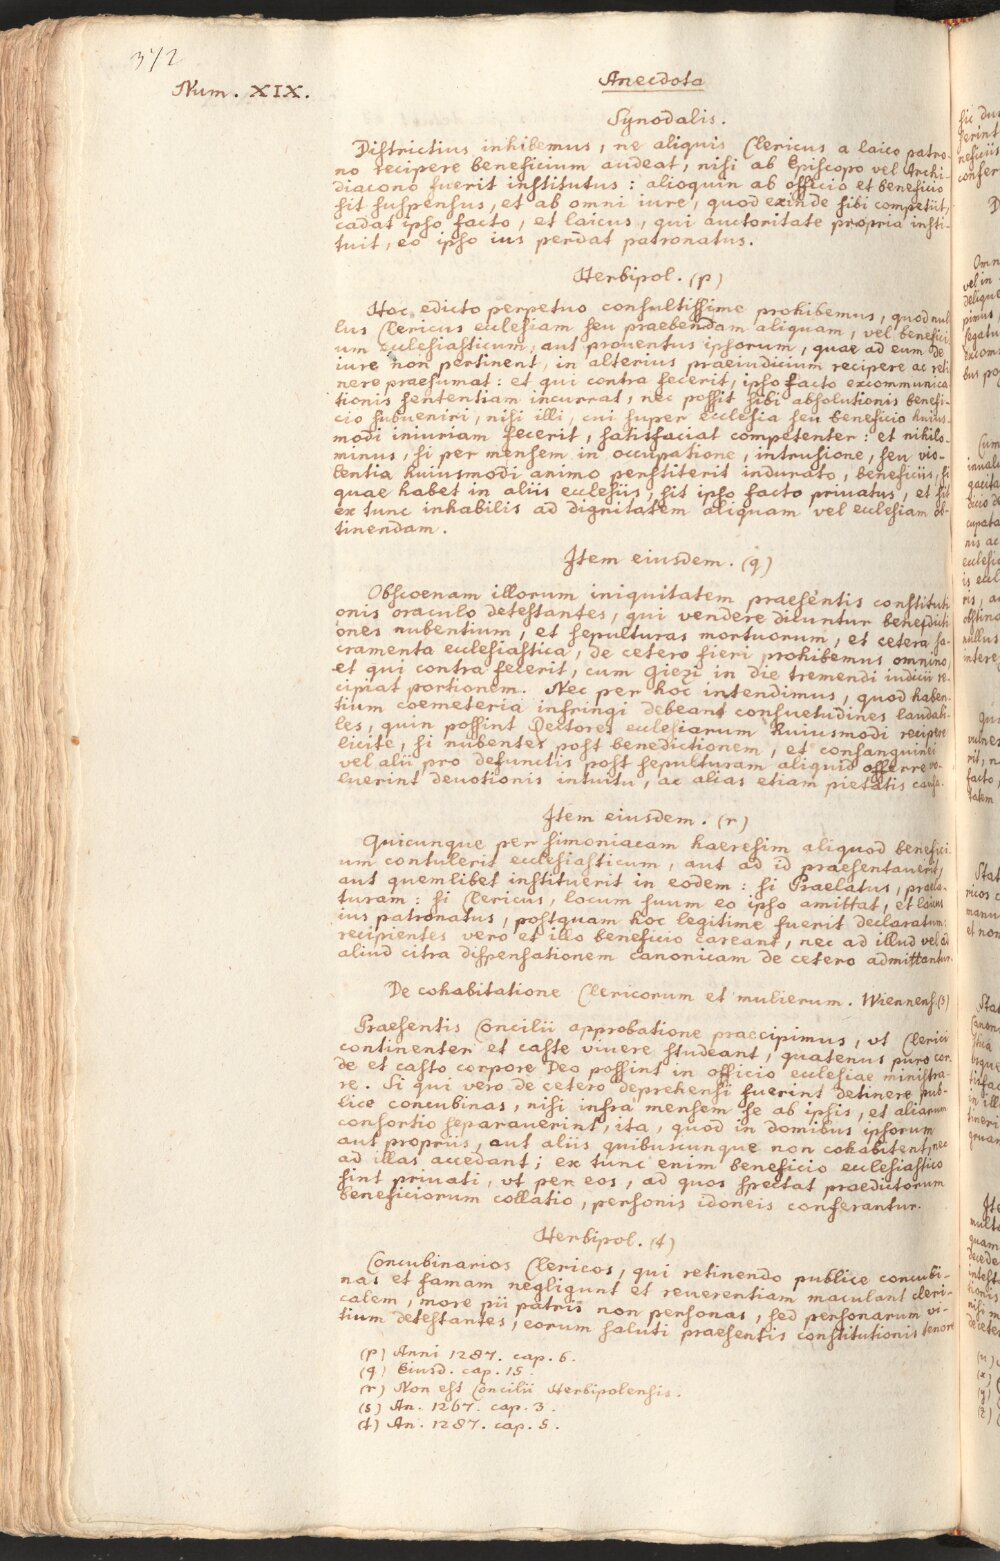 372
Num. XIX.
Anecdota
Synodalis.
Districtius inhibemus, ne aliquis Clericus a laico patro-
no recipere beneficium audeat, nisi ab Episcopo vel Archi-
diacono fuerit institutus: alioquin ab officio et beneficio
sit suspensus, et ab omni iure, quod exinde sibi competiit,
cadat ipso facto, et laicus, qui auctoritate propria insti-
tuit, eo ipso ius perdat patronatus.
Herbipol. (p)
Hoc edicto perpetuo consultissime prohibemus, quod nul
lus Clericus ecclesiam seu praebendam aliquam, vel benefici
um ecclesiasticum, aut prouentus ipsorum, quae ad eum de
iure non pertinent, in alterius praeiudicium recipere ac reti
nere praesumat: et qui contra fecerit, ipso facto excommunica
tionis sententiam incurrat, nec possit sibi absolutionis benefi-
cio subueniri, nisi illi, cui super ecclesia seu beneficio huius-
modi iniuriam fecerit, satisfaciat competenter: et nihilo-
minus, si per mensem in occupatione, intrusione, seu vio-
lentia huiusmodi animo perstiterit indurato, beneficiis, si
quae habet in aliis ecclesiis, sit ipso facto priuatus, et sit
ex tunc inhabilis ad dignitatem aliquam vel ecclesiam ob-
tinendam.
Item eiusdem. (q)
Obscoenam illorum iniquitatem praesentis constituti
onis oraculo detestantes, qui vendere dicuntur benedicti
ones nubentium, et sepulturas mortuorum, et cetera sa-
cramenta ecclesiastica, de cetero fieri prohibemus omnino,
et qui contra fecerit, cum Giezi in die tremendi iudicii re-
cipiat portionem. Nec per hoc intendimus, quod haben
tium coemeteria infringi debeant consuetudines laudabi-
les, quin possint Rectores ecclesiarum huiusmodi recipere
licite, si nubentes post benedictionem, et consanguinei
vel alii pro defunctis post sepulturam aliquid offerre vo-
luerint deuotionis intuitu, ac alias etiam pietatis causa.
Item eiusdem. (r)
Quicunque per simoniacam haeresim aliquod benefici
um contulerit ecclesiasticum, aut ad id praesentauerit,
aut quemlibet instituerit in eodem: si Praelatus, praela-
turam: si Clericus, locum suum eo ipso amittat, et laicus
ius patronatus, postquam hoc legitime fuerit declaratum:
recipientes vero et illo beneficio careant, nec ad illud vel ad
aliud citra dispensationem canonicam de cetero admittantur.
De cohabitatione Clericorum et mulierum. Wiennens. (s)
Praesentis Concilii approbatione praecipimus, vt Clerici
continenter et caste viuere studeant, quatenus puro cor-
de et casto corpore Deo possint in officio ecclesiae ministra-
re. Si qui vero de cetero deprehensi fuerint detinere pub-
lice concubinas, nisi infra mensem se ab ipsis, et aliarum
consortio separauerint, ita, quod in domibus ipsorum
aut propriis, aut aliis quibuscunque non cohabitent, nec
ad illas accedant; ex tunc enim beneficio ecclesiastico
sint priuati, vt per eos, ad quos spectat praedictorum
beneficiorum collatio, personis idoneis conferantur.
Herbipol. (t)
Concubinarios Clericos, qui retinendo publice concubi-
nas et famam negligunt et reuerentiam maculant cleri-
calem, more pii patris non personas, sed personarum vi-
tium detestantes, eorum saluti praesentis constitutionis tenore
(p) Anni 1287. cap. 6.
(q) Eiusd. cap. 15.
(r) Non est Concilii Herbipolensis.
(s) An. 1267. cap. 3.
(t) An. 1287. cap. 5.